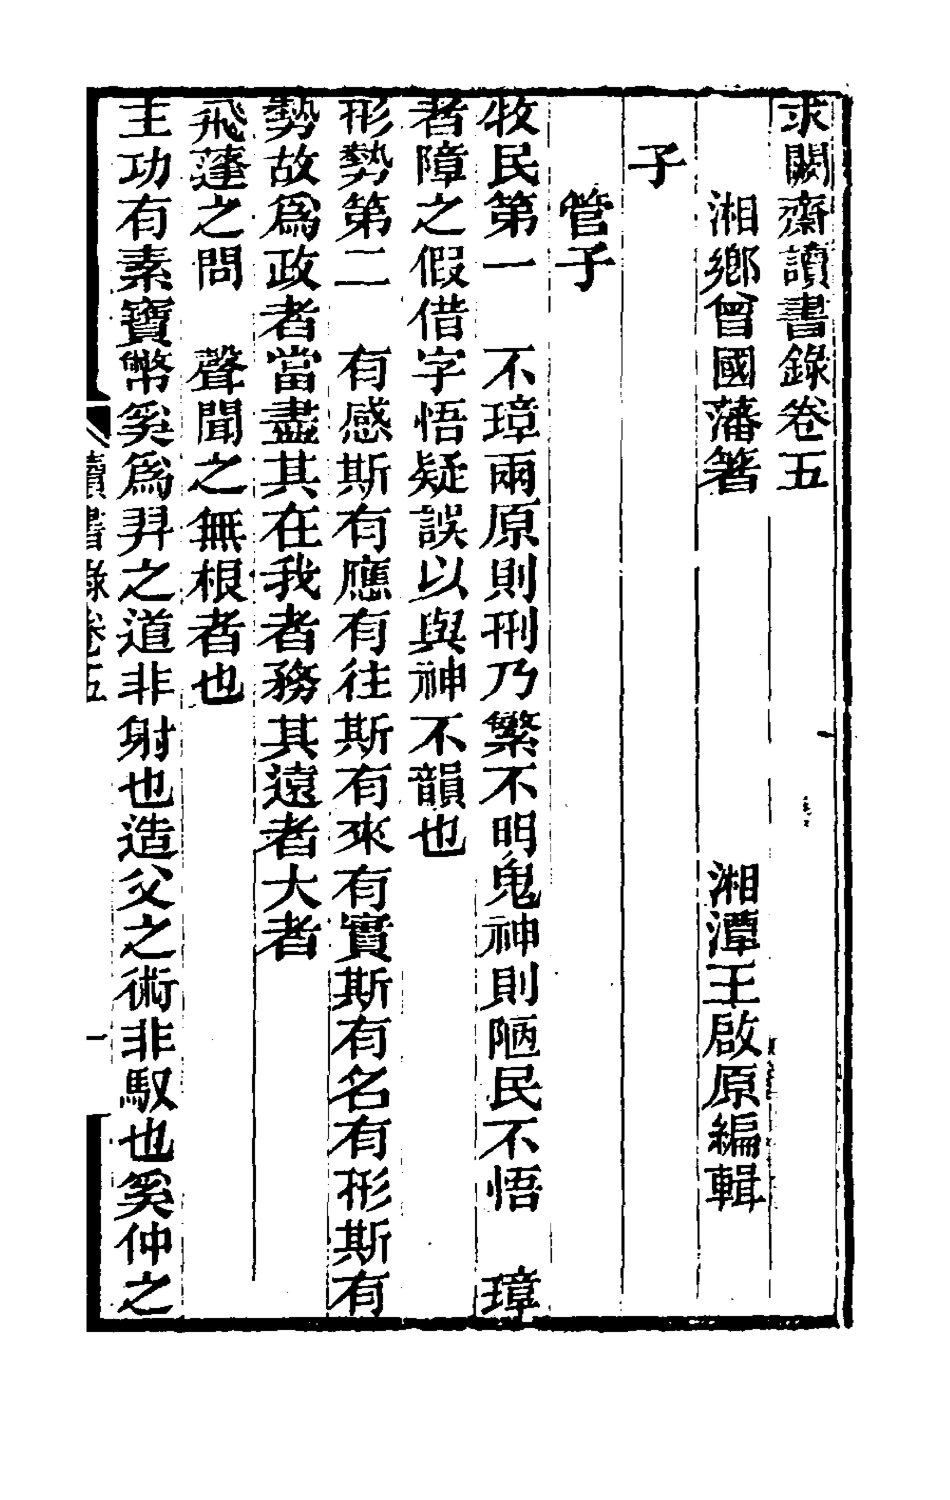 求闕齋讀書錄卷五
湘鄉曾國藩箸　湘潭王啟原編輯
子
管子
牧民第一　不璋兩原則刑乃繁不明鬼神則陋民不悟　璋
者障之假借字悟疑誤以與神不韻也
形勢第二　有感斯有應有往斯有來有實斯有名有形斯有
勢故爲政者當盡其在我者務其遠者大者
飛蓬之問　聲聞之無根者也
主功有素寶幣奚爲羿之道非射也造父之術非馭也奚仲之
讀書錄卷五
一